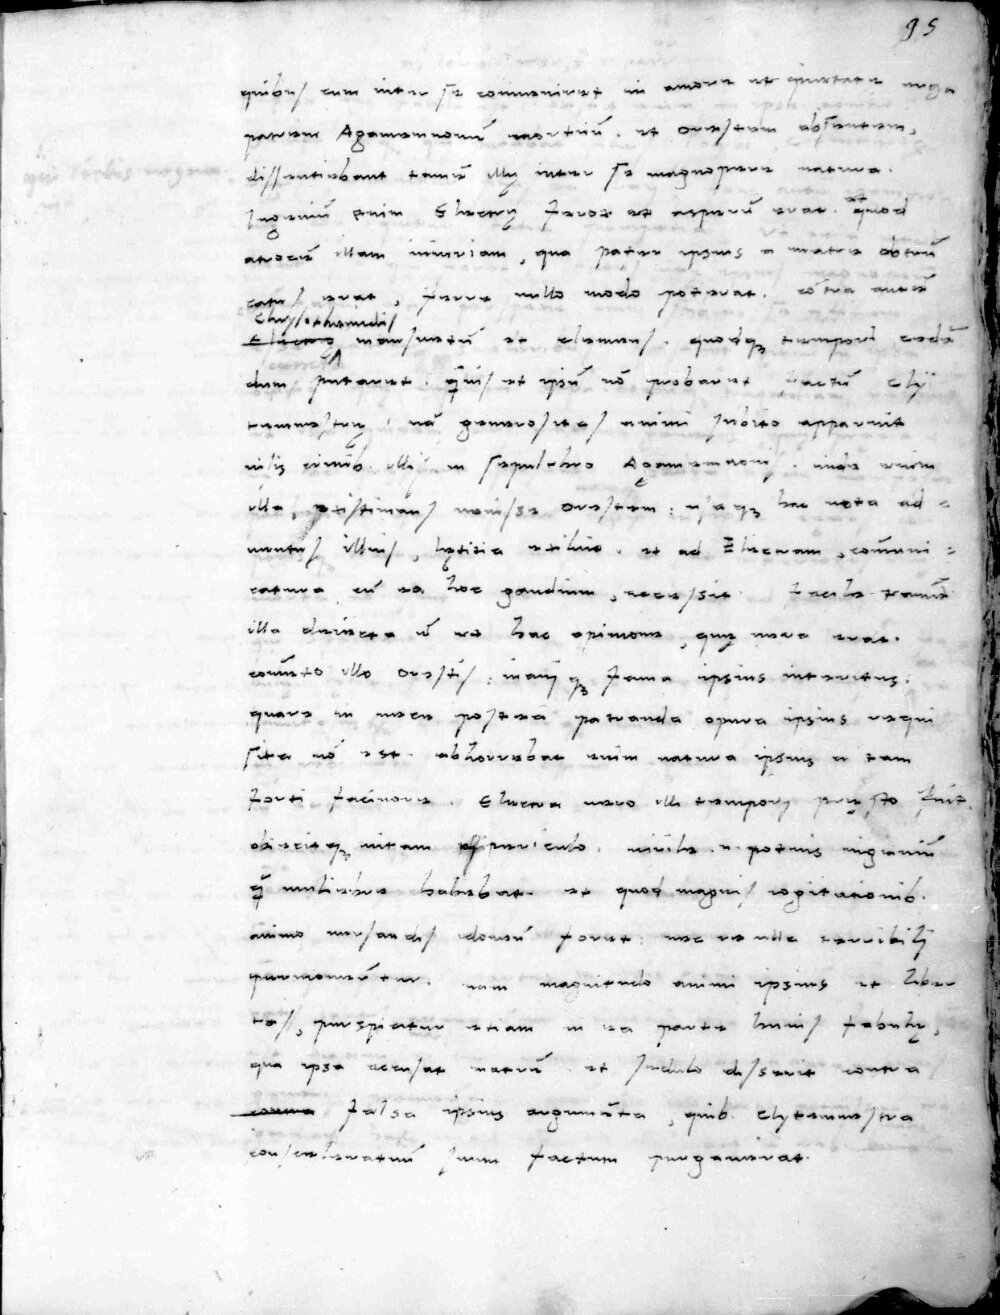 95
quibus cum inter se conuenirent in amore et pietate erga
patrem Agamemnonem mortuū. et Orestem absentem,
dissentiebant tamen illę inter se magnopere natura.
Ingeniū enim Electrę ferox et asperū erat. et quod
atrocem illam iniuriam, qua pater ipsius a matre obtrū
catus erat, ferre nullo modo poterat. cōtra autē
Chrysothemidis
Electrę mansuetū et clemens. quodq; tempori cedē
dum putaret. q̄uis et ipsū nō probaret factū Cly
temnestrę, nā generositas animi subito apparuit
uisis crinib. illis in sepulchro Agamemnonis. inde enim
illa, existimans uenisse Orestem: usaq; hac nota ad
uentus illius, lętitia exiluit. et ad Electram, comuni =
catura cū ea hoc gaudium, accessit. facile tamē
illa deiecta ē ex hac opinione, quę uera erat.
comēto illo Orestis: inaniq; fama ipsius interitus.
quare in nece postea patranda opera ipsius requi
sita nō est. abhorrebat enim natura ipsius a tam
forti facinore. Electra uero illi tempori pręsto fuit.
obiecitq; uitam periculo. uirile .n. potius ingeniū
q̄ muliebre habebat. et quod magnis cogitationib.
animo uersandis idoneū foret: nec re ulla terribili
permoueretur. nam magnitudo animi ipsius et liber
tas, perspicitur etiam in ea parte huius fabulę,
qua ipsa accusat matrem. et sedulo disserit contra
falsa ipsius argumēta, quib. Clytemnestra
consceleratum suum factum purgauerat.